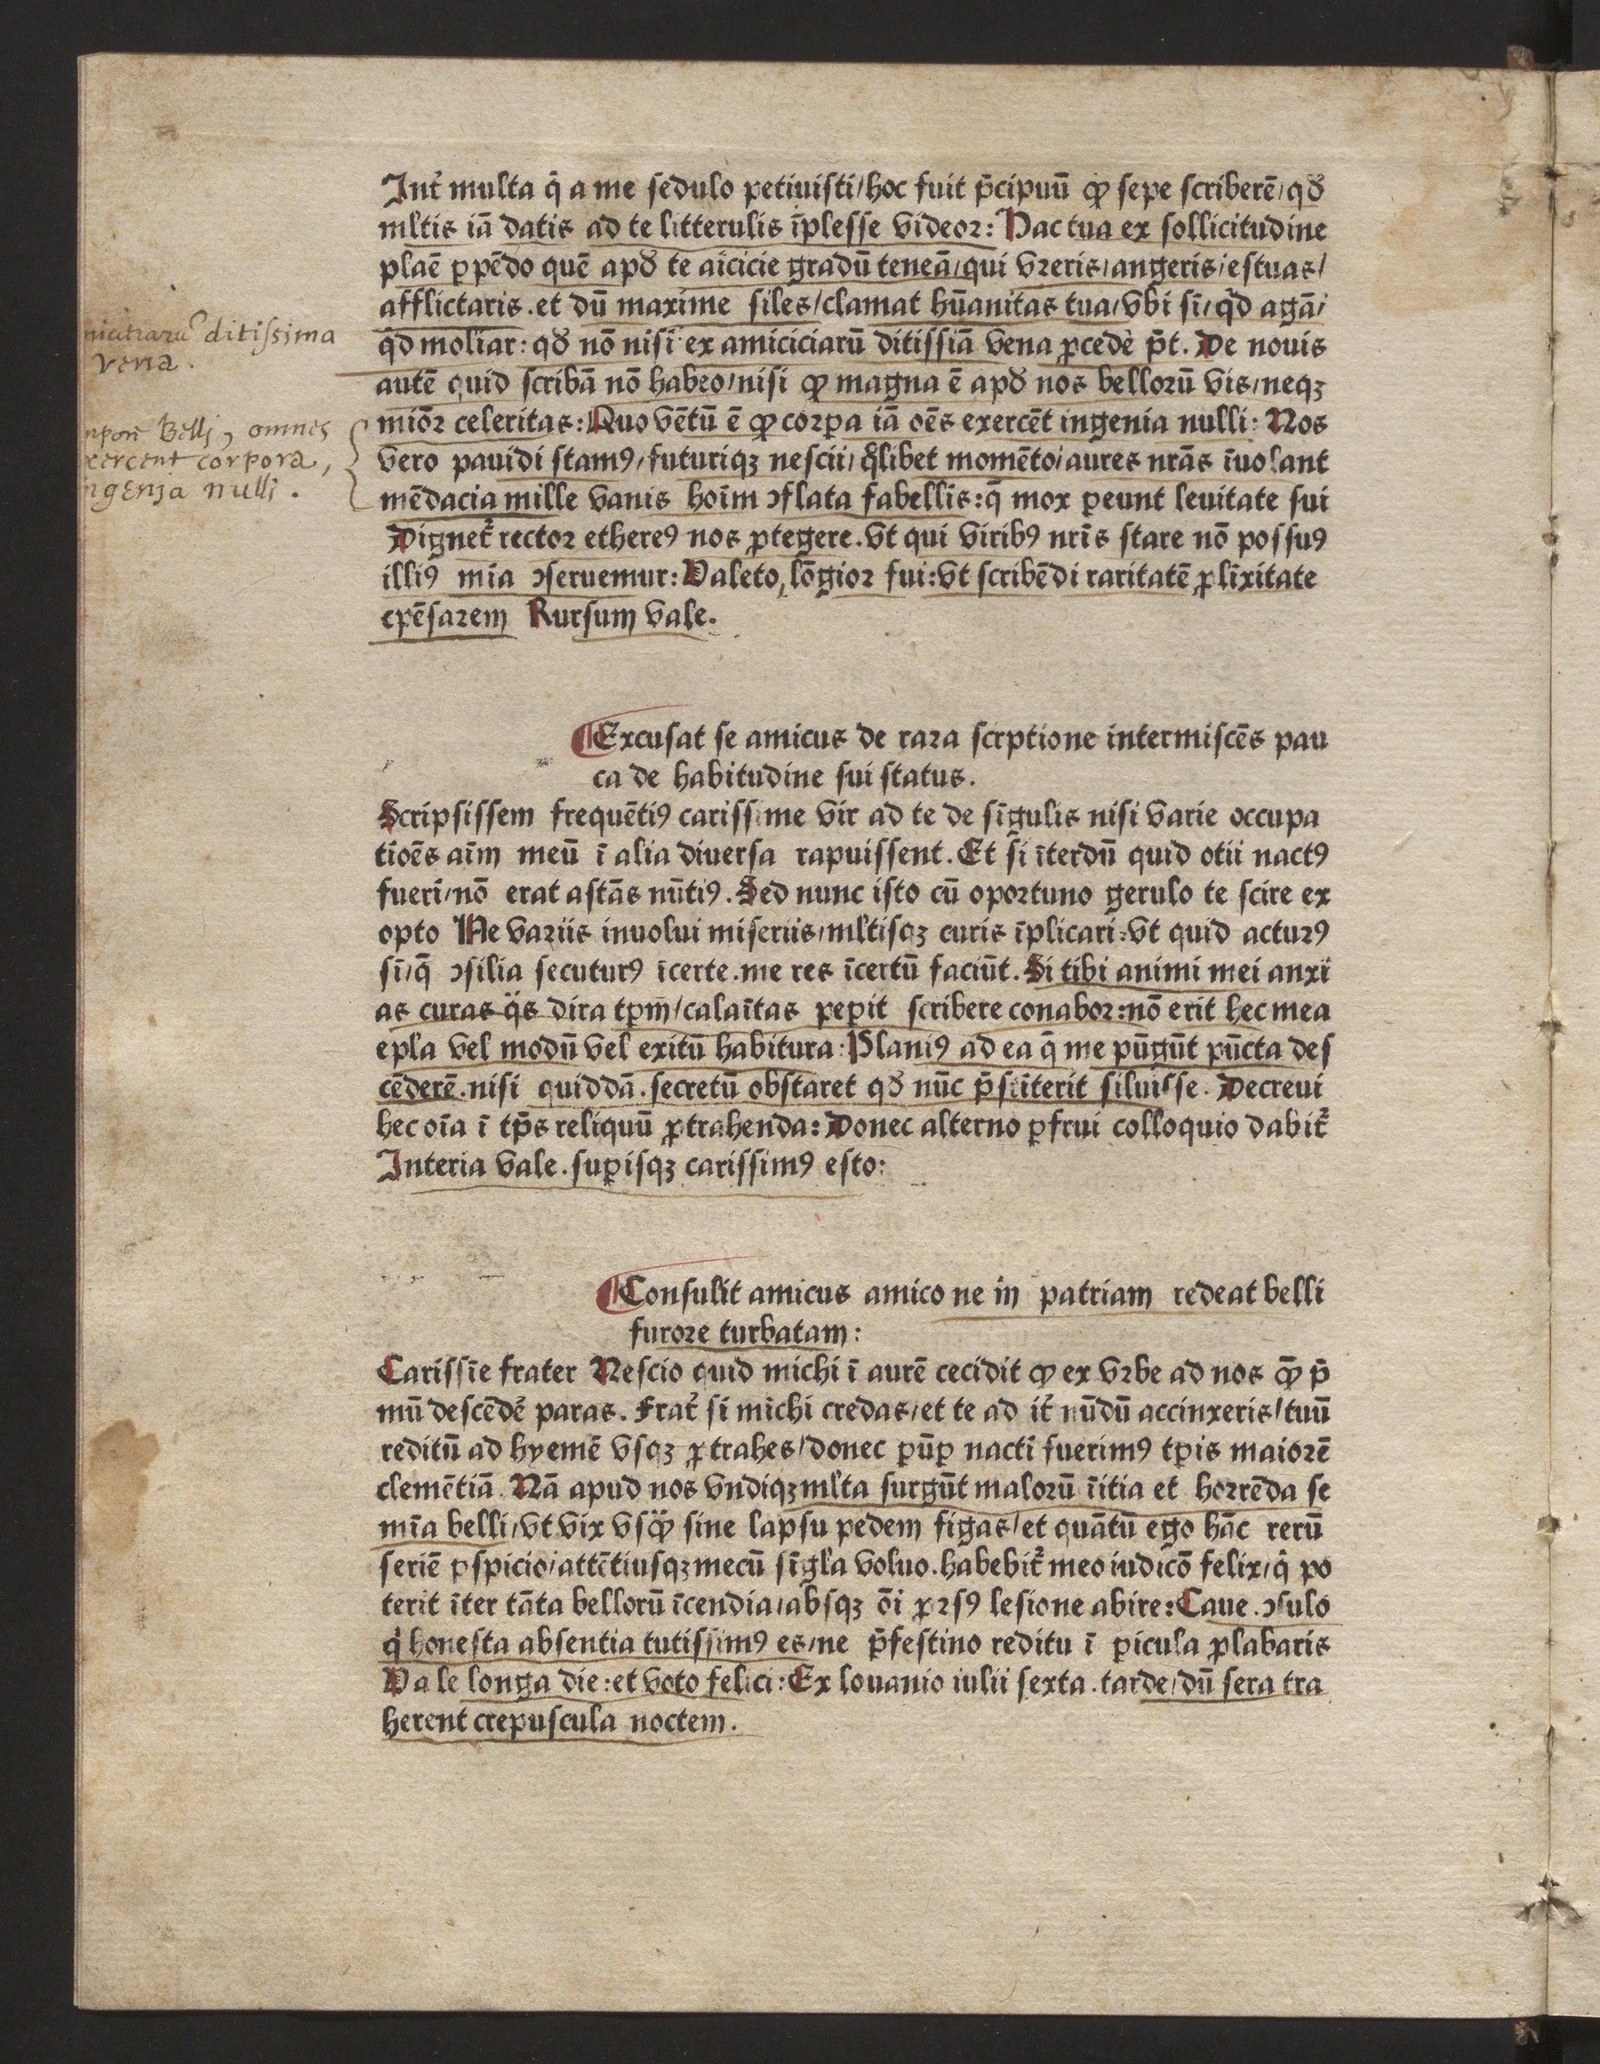 Int᷑ multa q̇ a me sedulo petiuisti/hoc fuit p̄cipuū ꝙ sepe scriberē/qđ
ml̓tis iā datis ad te litterulis īplesse videor: Hac tua ex sollicitudine
plaē ꝑpēdo quē apđ te aīcicie gradū teneā/qui vreris/angeris/estuas/
afflictaris. et dū maxime siles/clamat hūanitas tua/vbi sī/qd̓ agā/
qd̓ moliar: qđ nō nisi ex amiciciarū ditissīa vena ꝓcedē p̄t. De nouis
autē quid scribā nō habeo/nisi ꝙ magna ē apđ nos bellorū vis/neqꝫ
miōr celeritas: Quo vētū ē ꝙ corꝑa iā oēs exercēt ingenia nulli: Nos
vero pauidi stamꝰ/futuriqꝫ nescii/q̊libet momēto/aures nrās īuolant
mēdacia mille vanis hoīm ↄflata fabellis: q̄ mox ꝑeunt leuitate sui
Dignet᷑ rector ethereꝰ nos ꝓtegere. vt qui viribꝰ nrīs stare nō possuꝰ
illiꝰ mīa ↄseruemur: Valeto, lōgior fui: vt scribēdi raritatē ꝓlīxitate
epēsarem Rursum vale.
niciarū ditissima
vena.
mpore Belli, omnes
xercent corpora,
ngenia nulli.
¶Excusat se amicus de rara scrptione intermiscēs pau
ca de habitudine sui status.
Scripsissem frequētiꝰ carissime vir ad te de sīgulis nisi varie occupa
tioēs aīm meū ī alia diuersa rapuissent. Et si īterdū quid otii nactꝰ
fueri/nō erat astās nūtiꝰ. Sed nunc isto cū oportuno gerulo te scire ex
opto Me variis inuolui miseriis/ml̓tisqꝫ curis īplicari: vt quid acturꝰ
sī/q̄ ↄsilia secuturꝰ īcerte. me res īcertū faciūt. Si tibi animi mei anxi
as curas q̈s dira tꝑm̄/calaītas peꝑit scribere conabor: nō erit hec mea
epla vel modū vel exitū habitura: Planiꝰ ad ea q̄ me pūgūt pūcta des
cēderē. nisi quiddā. secretū obstaret qđ nūc p̄stīterit siluisse. Decreui
hec oīa ī tp̄s reliquū ꝓtrahenda: Donec alterno ꝑfrui colloquio dabit᷑
Interia vale. suꝑisqꝫ carissimꝰ esto:
¶Consulit amicus amico ne in patriam redeat belli
furore turbatam:
Carissīe frater Nescio quid michi ī aurē cecidit ꝙ ex vrbe ad nos ꝙ̄ p̄
mū descēdē paras. Frat᷑ si michi credas/et te ad it᷑ nūdū accinxeris/tuū
reditū ad hyemē vsqꝫ ꝓtrahes/donec ꝑūꝑ nacti fuerimꝰ tꝑis maiorē
clemētiā. Nā apud nos vndiqꝫ ml̓ta surgūt malorū īitia et horrēda se
mīa belli/vt vix vsꝙ̈ sine lapsu pedem figas/et quātū ego hāc rerū
seriē ꝑspicio/attētiusqꝫ mecū sīgl̓a voluo. habebit᷑ meo iudicō felix/q̇ po
terit īter tāta bellorū īcendia/absqꝫ ōi ꝓrsꝰ lesione abire: Caue. ↄsulo
q̇ honesta absentia tutissimꝰ es/ne p̄festino reditu ī ꝑicula ꝓlabaris
Vale longa die: et voto felici: Ex louanio iulii sexta. tarde/dū sera tra
herent crepuscula noctem.